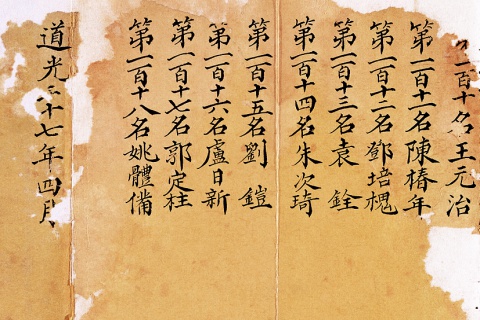 第一百十名王元治
第一百十一名陳椿年
第一百十二名鄧培槐
第一百十三名袁銓
第一百十四名朱次琦
第一百十五名劉鎧
第一百十六名盧日新
第一百十七名郭定柱
第一百十八名姚體備
道光二十七年四月